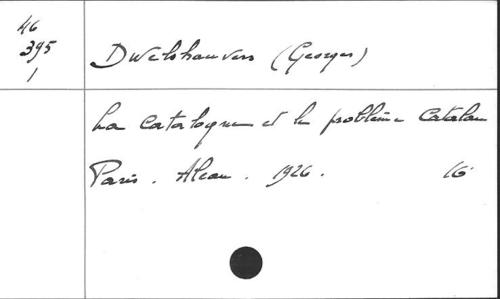 46
395
1
Dwelshauvers (Georges)
La Catalogne et le problème Catalan
Paris. Alcan. 1926. 16°